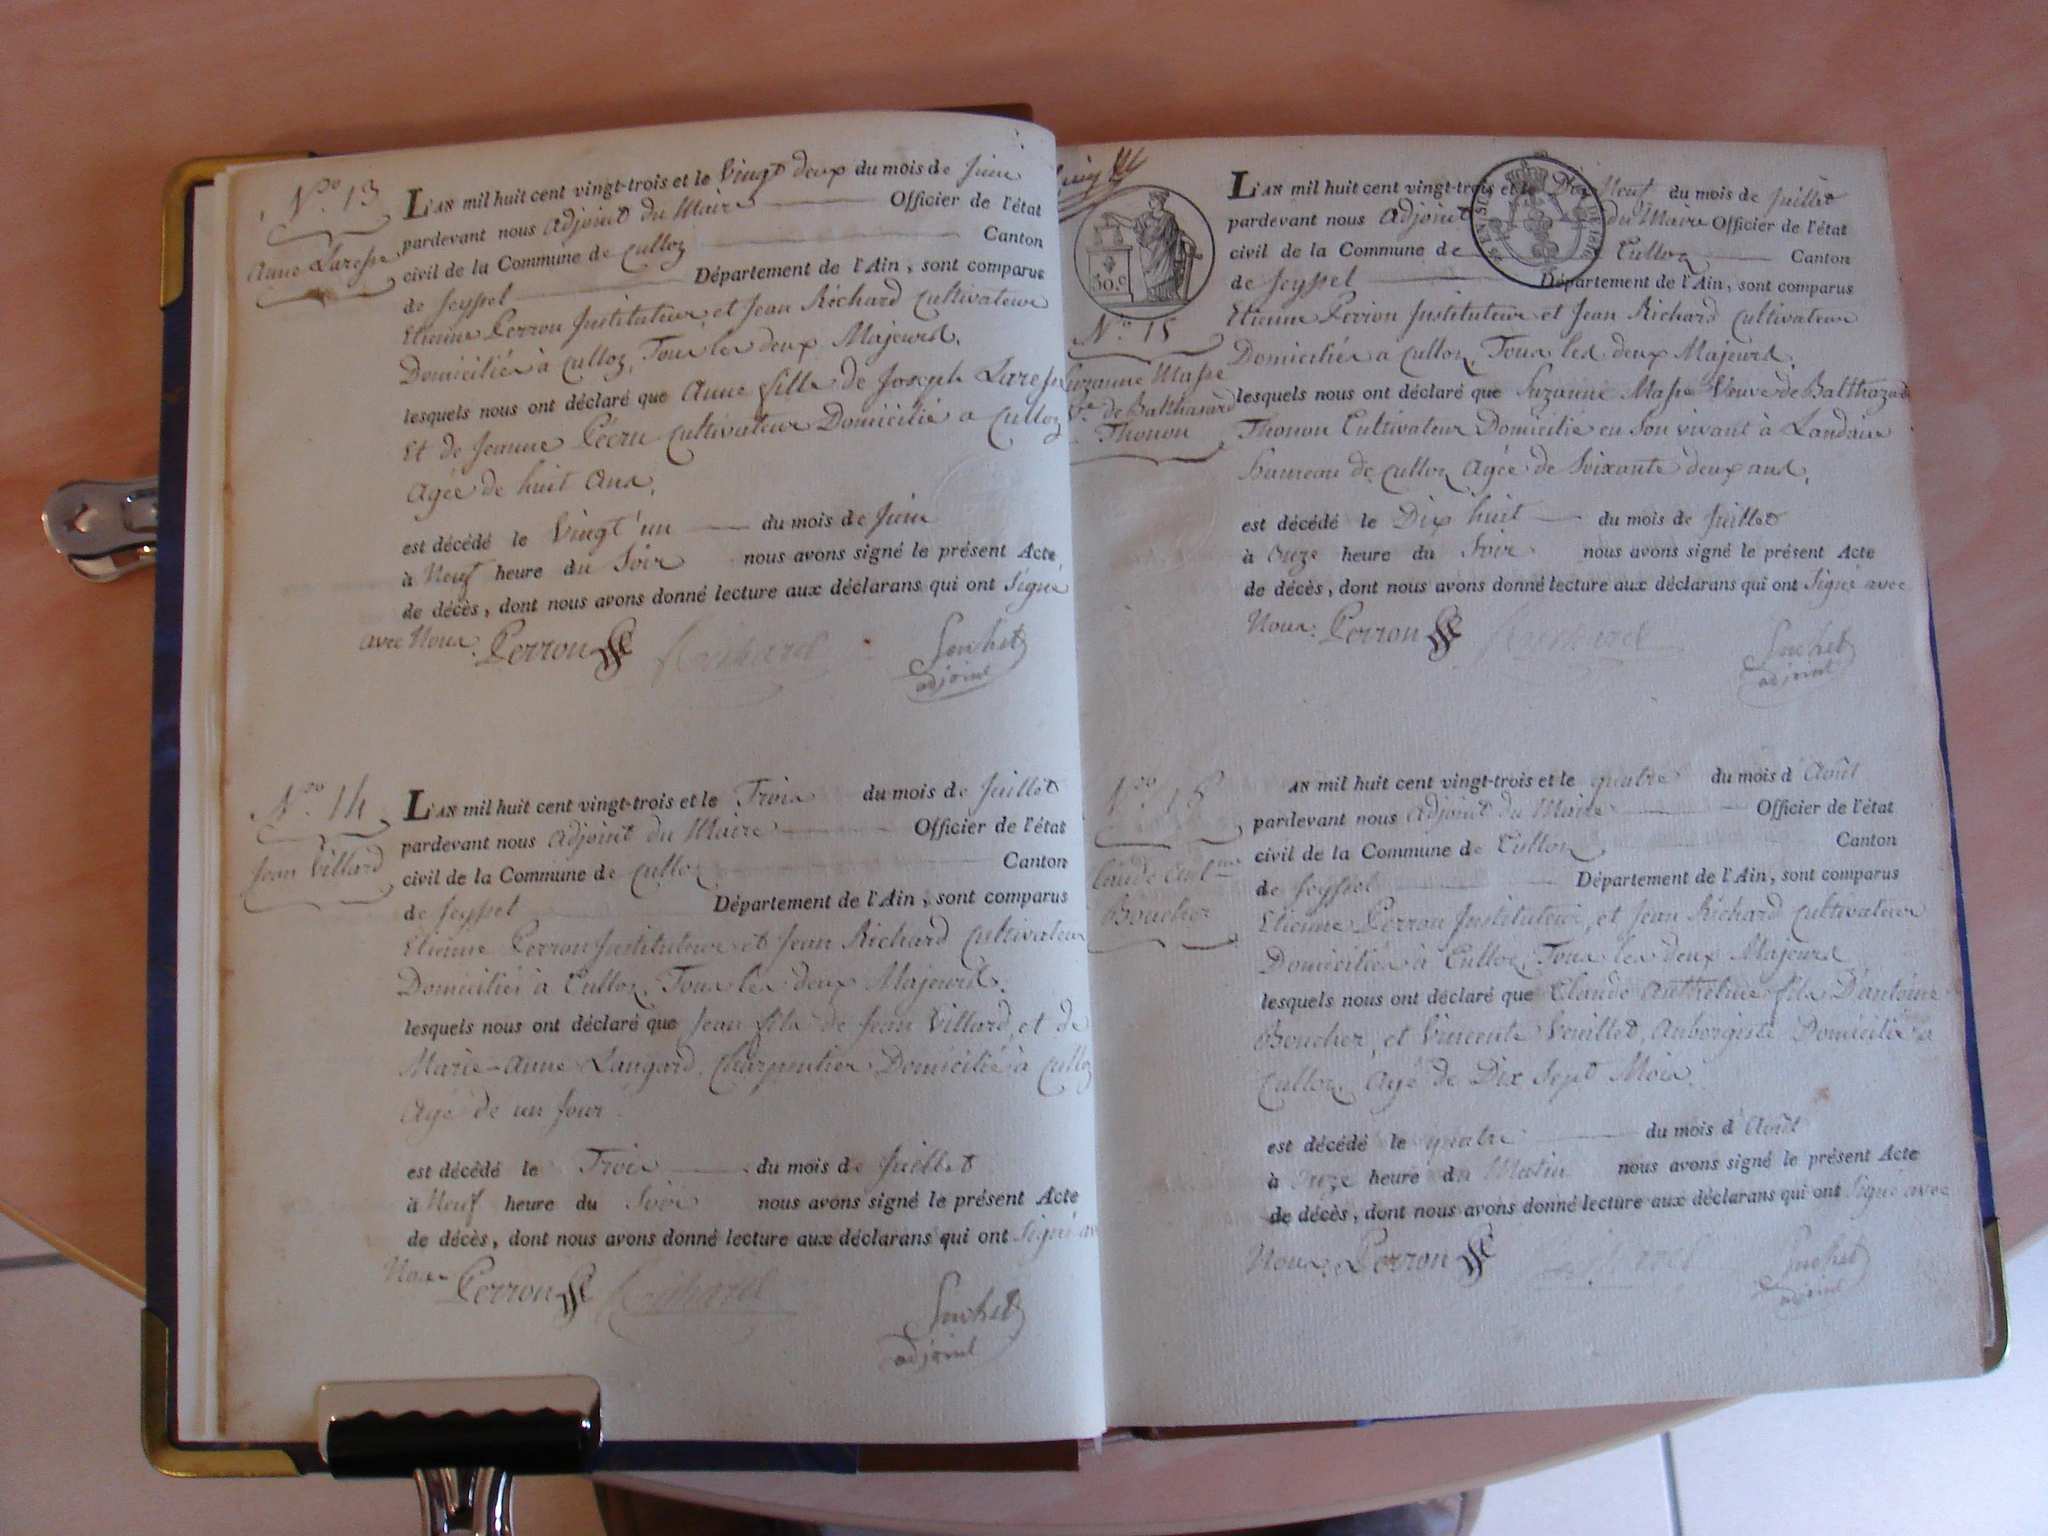 N.ro 13
Anne Laresse
L'AN mil huit cent vingt-trois et le Vingt deux du mois de Juin
pardevant nous adjoint du Maire Officier de l'état
civil de la Commune de Culloz Canton
de Seyssel Département de l'Ain, sont comparus
Etienne Perron Instituteur et Jean Richard Cultivateur
Domiciliés à Culloz, Tous les deux Majeurs.
lesquels nous ont déclaré que Anne fille de Joseph Laresse
Et de Jeanne Cultivateur Domicilié a Culloz
Agée de huit Ans.
est décédé le Vingt'un du mois de Juin
à Neuf heure du Soir nous avons signé le présent Acte
de décès, dont nous avons donné lecture aux déclarans qui ont Signé
avec Nous. Perron Richard Suchet
adjoint
N.ro 14
Jean Villard
L'AN mil huit cent vingt-trois et le Trois du mois de Juillet
pardevant nous Adjoint du Maire Officier de l'état
civil de la Commune de Culloz Canton
de Seyssel Département de l'Ain, sont comparus
Etienne Perron Instituteur et Jean Richard Cultivateur
Domiciliés à Culloz, Tous les deux Majeurs.
lesquels nous ont déclaré que Jean fils de Jean Villard, et de
Marie-Anne Langard, Charpentier Domicilié à Culloz
Agé de un Jour.
est décédé le Trois du mois de Juillet
à Neuf heure du Soir nous avons signé le présent Acte
de décès, dont nous avons donné lecture aux déclarans qui ont Signé av
Nous Perron Richard Suchet
adjoint
30.c
N.ro 15
Suzanne Masse
V.e de Balthasard
Thonon
L'AN mil huit cent vingt-trois et le Dix Neuf du mois de Juillet
pardevant nous Adjoint du Maire Officier de l'état
civil de la Commune de Culloz Canton
de Seyssel Département de l'Ain, sont comparus
Etienne Perron Instituteur et Jean Richard Cultivateur
Domiciliés a Culloz, Tous les deux Majeurs.
lesquels nous ont déclaré que Suzanne Masse Veuve de Balthazard
Thonon Cultivateur Domicilié en Son vivant à Landaise
hameau de Culloz Agée de Soixante deux ans,
est décédé le Dix huit du mois de Juillet
à Onze heure du Soir nous avons signé le présent Acte
de décès, dont nous avons donné lecture aux déclarans qui ont Signé avec
Nous. Perron Richard Suchet
adjoint
Boucher
AN mil huit cent vingt-trois et le quatre du mois d'Août
pardevant nous Adjoint du Maire Officier de l'état
civil de la Commune de Culloz Canton
de Seyssel Département de l'Ain, sont comparus
Etienne Perron Instituteur, et Jean Richard Cultivateur
Domiciliés à Culloz, Tous les deux Majeurs
lesquels nous ont déclaré que Claude Anthelme fils D'antoine
Boucher, et Vincente Vuillet, Aubergiste Domicilié a
Culloz, Agé de Dix Sept Mois.
est décédé le quatre du mois d'Août
à Onze heure du Matin nous avons signé le présent Acte
de décès, dont nous avons donné lecture aux déclarans qui ont Signé avec
Nous. Perron Richard Suchet
adjoint